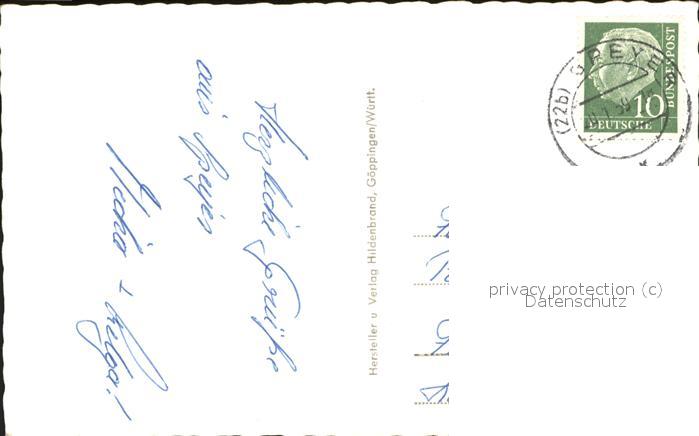 Herzliche Grüße
aus Speyer
Hersteller u. Verlag Hildenbrand, Göppingen/Württ.
(22b) SPEYE
10
DEUTSCHE
BUNDESPOST
privacy protection (c)
Datenschutz